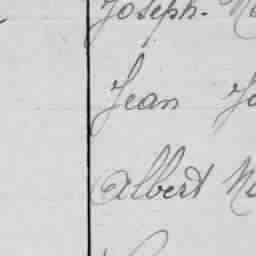 Joseph.
Jean
Albert